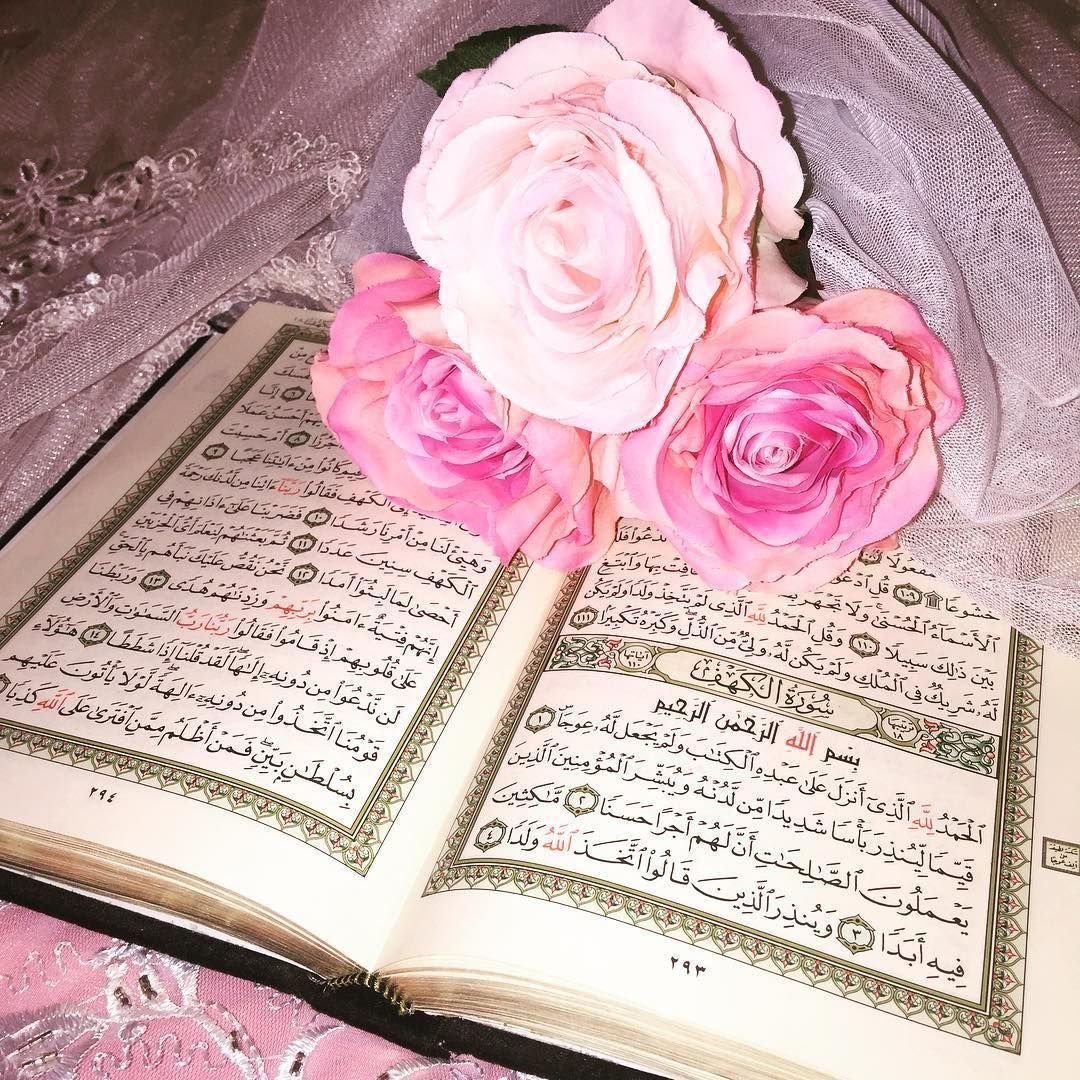 مَفْعُولًا
خُشُوعًا ۩ ١٠٩ قُلِ ٱدْعُوا۟
ٱلْأَسْمَآءُ ٱلْحُسْنَىٰ وَلَا تَجْهَرْ بِهَا وَٱبْتَغِ
بَيْنَ ذَٰلِكَ سَبِيلًا ١١٠ وَقُلِ ٱلْحَمْدُ لِلَّهِ ٱلَّذِى لَمْ يَتَّخِذْ وَلَدًا وَلَمْ يَكُن
لَّهُۥ شَرِيكٌ فِى ٱلْمُلْكِ وَلَمْ يَكُن لَّهُۥ وَلِىٌّ مِّنَ ٱلذُّلِّ وَكَبِّرْهُ تَكْبِيرًا ١١١
سُورَةُ الكَهْفِ آياتها ١١٠
بِسْمِ ٱللَّهِ ٱلرَّحْمَٰنِ ٱلرَّحِيمِ
ٱلْحَمْدُ لِلَّهِ ٱلَّذِىٓ أَنزَلَ عَلَىٰ عَبْدِهِ ٱلْكِتَٰبَ وَلَمْ يَجْعَل لَّهُۥ عِوَجَا ١
قَيِّمًا لِّيُنذِرَ بَأْسًا شَدِيدًا مِّن لَّدُنْهُ وَيُبَشِّرَ ٱلْمُؤْمِنِينَ ٱلَّذِينَ
يَعْمَلُونَ ٱلصَّٰلِحَٰتِ أَنَّ لَهُمْ أَجْرًا حَسَنًا ٢ مَّٰكِثِينَ
فِيهِ أَبَدًا ٣ وَيُنذِرَ ٱلَّذِينَ قَالُوا۟ ٱتَّخَذَ ٱللَّهُ وَلَدًا ٤
٢٩٣
إِنَّا
أَحْسَنُ عَمَلًا
جُرُزًا ٨ أَمْ حَسِبْتَ
كَانُوا۟ مِنْ ءَايَٰتِنَا عَجَبًا ٩
ٱلْكَهْفِ فَقَالُوا۟ رَبَّنَآ ءَاتِنَا مِن لَّدُنكَ رَحْمَةً
وَهَيِّئْ لَنَا مِنْ أَمْرِنَا رَشَدًا ١٠ فَضَرَبْنَا عَلَىٰٓ ءَاذَانِهِمْ فِى
ٱلْكَهْفِ سِنِينَ عَدَدًا ١١ ثُمَّ بَعَثْنَٰهُمْ لِنَعْلَمَ أَىُّ ٱلْحِزْبَيْنِ
أَحْصَىٰ لِمَا لَبِثُوٓا۟ أَمَدًا ١٢ نَّحْنُ نَقُصُّ عَلَيْكَ نَبَأَهُم بِٱلْحَقِّ
إِنَّهُمْ فِتْيَةٌ ءَامَنُوا۟ بِرَبِّهِمْ وَزِدْنَٰهُمْ هُدًى ١٣ وَرَبَطْنَا
عَلَىٰ قُلُوبِهِمْ إِذْ قَامُوا۟ فَقَالُوا۟ رَبُّنَا رَبُّ ٱلسَّمَٰوَٰتِ وَٱلْأَرْضِ
لَن نَّدْعُوَا۟ مِن دُونِهِۦٓ إِلَٰهًا لَّقَدْ قُلْنَآ إِذًا شَطَطًا ١٤ هَٰٓؤُلَآءِ
قَوْمُنَا ٱتَّخَذُوا۟ مِن دُونِهِۦٓ ءَالِهَةً لَّوْلَا يَأْتُونَ عَلَيْهِم
بِسُلْطَٰنٍۭ بَيِّنٍ فَمَنْ أَظْلَمُ مِمَّنِ ٱفْتَرَىٰ عَلَى ٱللَّهِ كَذِبًا
٢٩٤